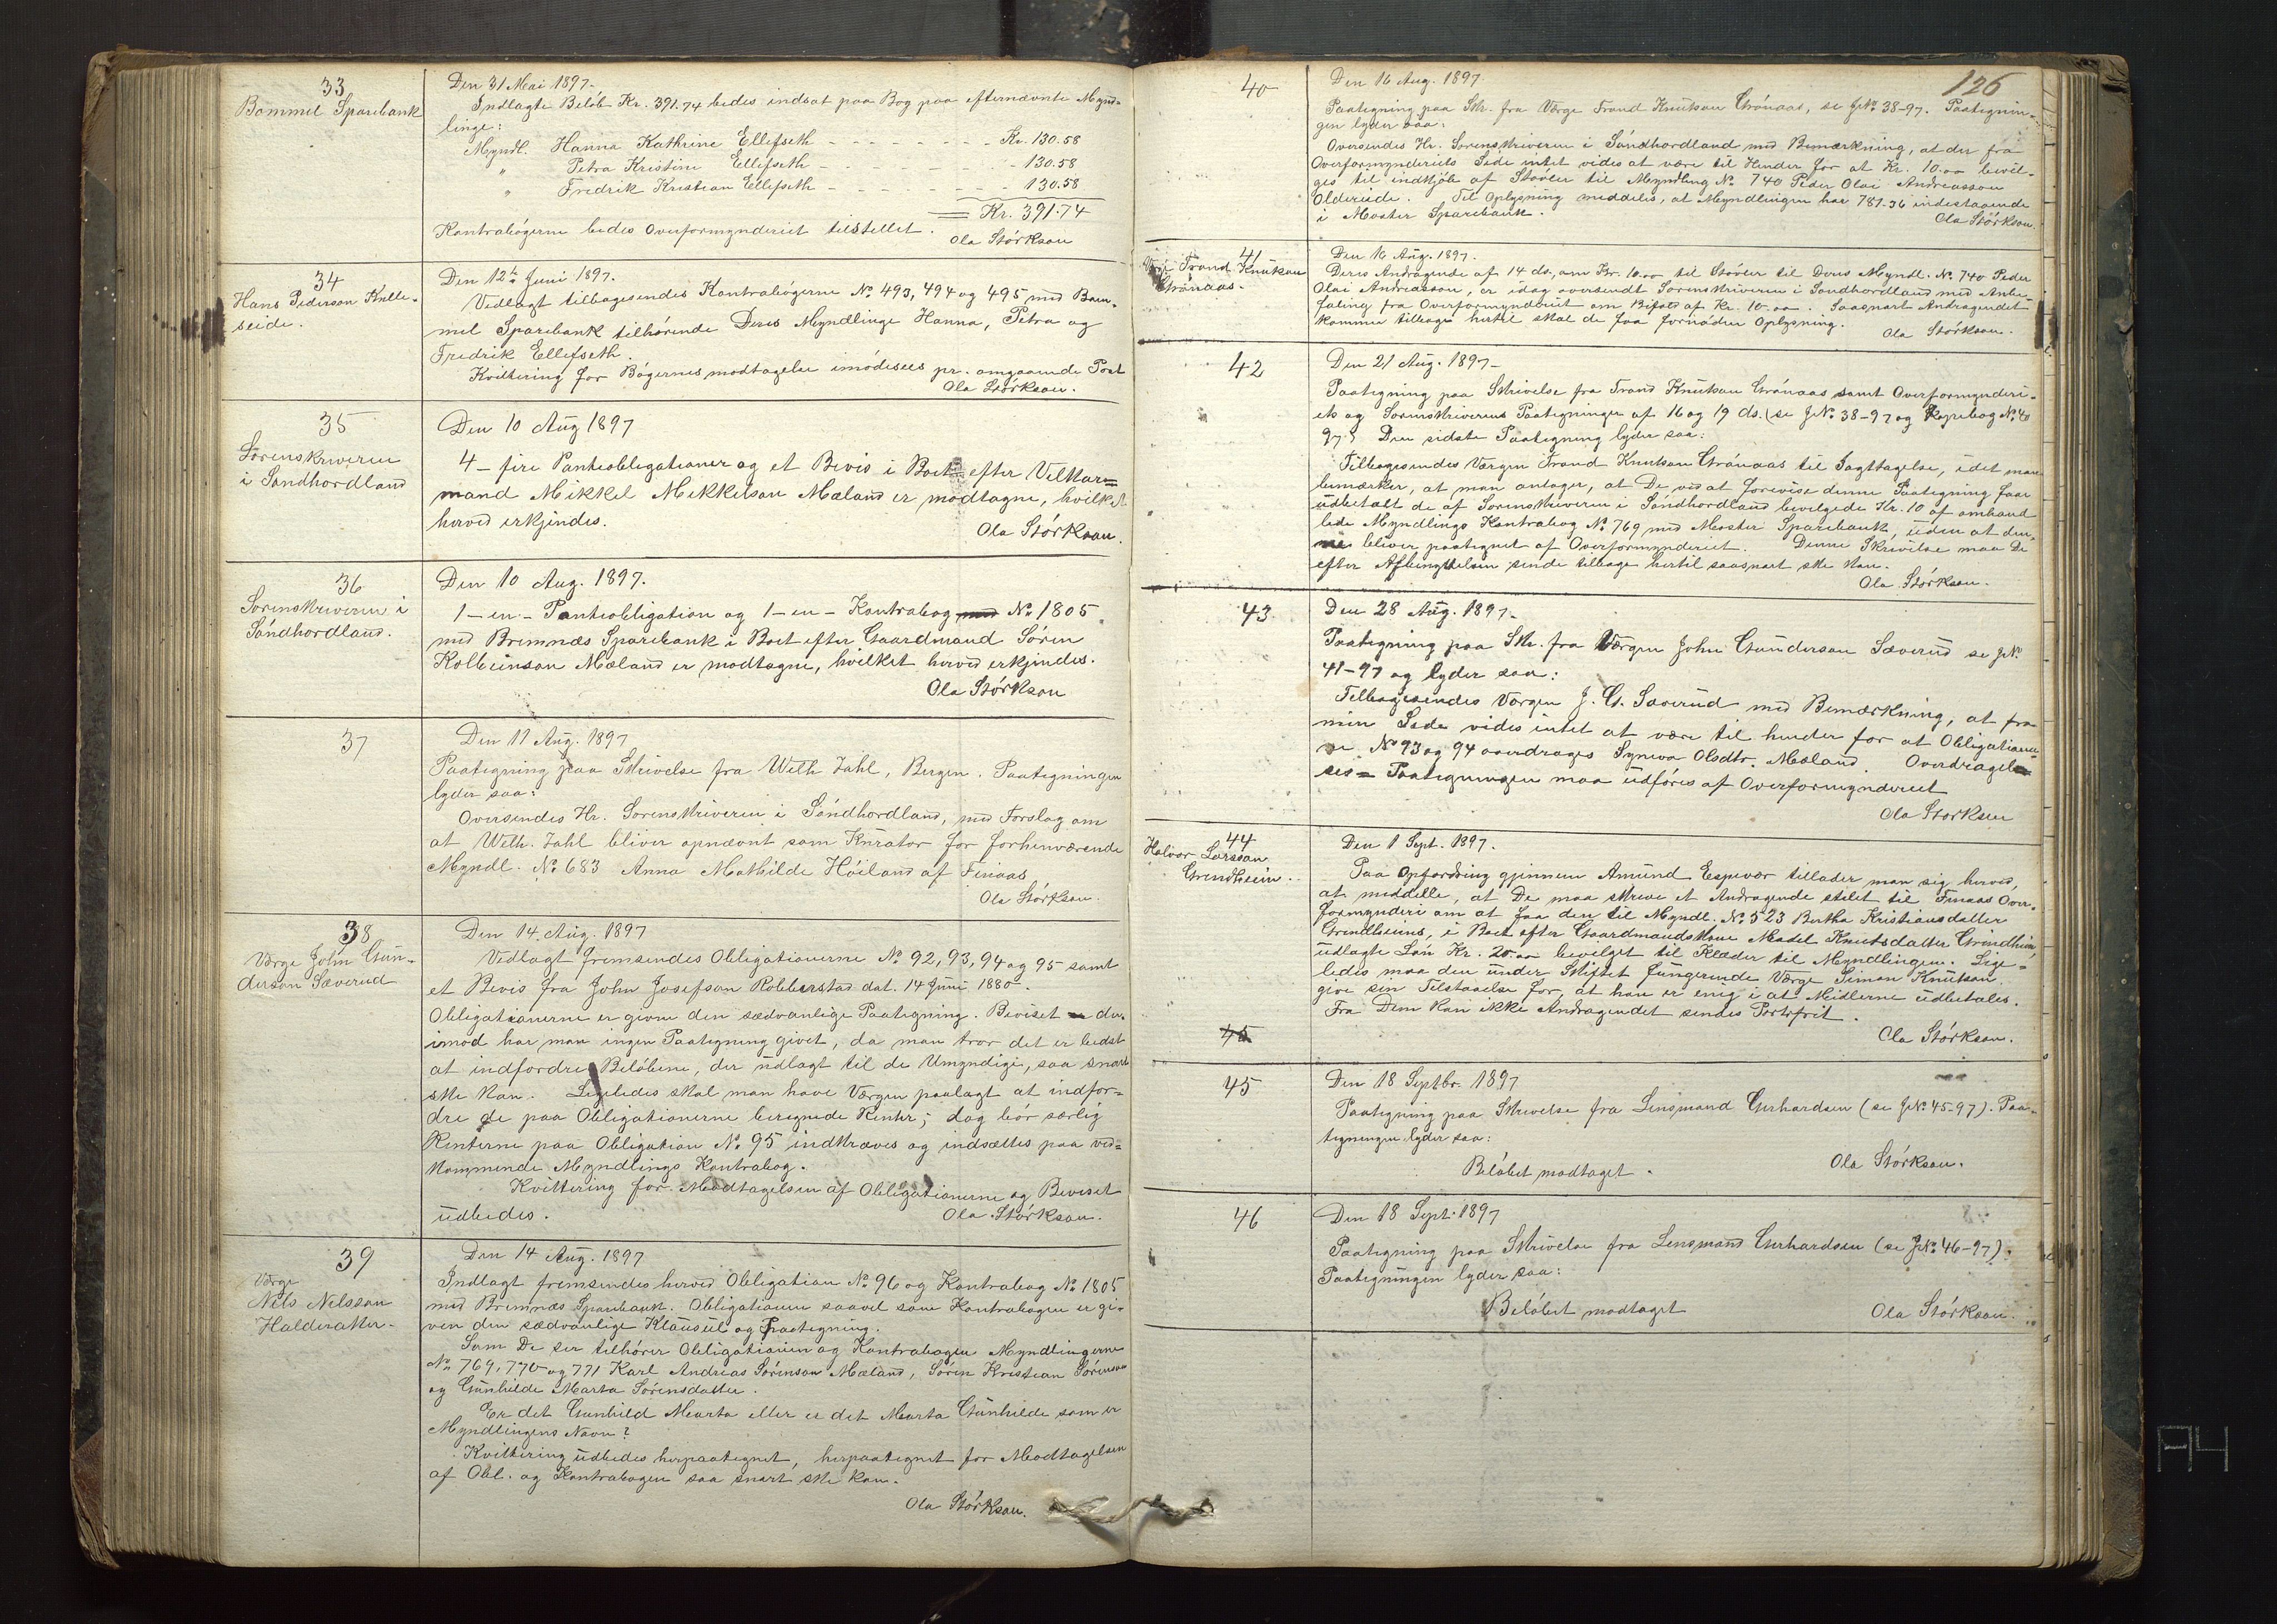 33
Bommel Sparebank
Den 31 Mai 1897.
Indlagte Beløb Kr. 391.74 bedes indsat paa Bog paa efternævnte Mynd-
linge:
Myndl. Hanna Kathrine Ellefseth - - - - - - - - Kr. 130.58
" Petra Kristine Ellefseth - - - - - - - - 130.58
" Fredrik Kristian Ellefseth - - - - - - - - 130.58
Kr. 391.74
Kontrabøgerne bedes Overformynderiet tilstellet.
Ola Størkson
34
Hans Pederson Kulle-
seide.
Den 12te Juni 1897.
Vedlagt tilbagesendes Kontrabøgerne No 493, 494 og 495 med Bom-
mel Sparebank tilhørende Deres Myndlinge Hanna, Petra og
Fredrik Ellefseth.
Kvittering for Bøgernes modtagelse imødesees pr. omgaaende Post
Ola Størkson.
35
Sorenskriveren
i Søndhordland
Den 10 Aug 1897
4 - fire Panteobligationer og et Bevis i Boet efter Velkar=
mand Mikkel Mikkelson Mæland er modtagne, hvilket
herved erkjendes.
Ola Størkson.
36
Sorenskriveren i
Søndhordland.
Den 10 Aug. 1897.
1 - en - Panteobligation og 1 - en - Kontrabog med No 1805
med Bremnæs Sparebank i Boet efter Gaardmand Søren
Kolbeinson Mæland er modtagne, hvilket herved erkjendes.
Ola Størkson
37
Den 11 Aug. 1897
Paategning paa Skrivelse fra Welh Jahl, Bergen. Paategningen
lyder saa:
Oversendes Hr. Sorenskriveren i Søndhordland, med Forslag om
at Welh. Jahl bliver opnævnt som Kurator for forhenværende
Myndl. No 683 Anna Mathilde Høiland af Finaas
Ola Størkson.
38
Værge John Gun-
derson Sæverud
Den 14. Aug. 1897
Vedlagt fremsendes Obligationerne No 92, 93, 94 og 95 samt
et Bevis fra John Josefson Robberstad dat. 14 Juni 1880.
Obligationerne er givne den sædvanlige Paategning. Beviset der-
imod har man ingen Paategning givet, da man tror det er bedst
at indfordre Beløbene, der udlagt til de Umyndige, saa snart
ske kan. Ligeledes skal man have Værgen paalagt at indfor-
dre de paa Obligationerne beregnede Renter; dog bør særlig
Renterne paa Obligation No 95 indkræves og indsættes paa ved-
kommende Myndlings Kontrabog.
Kvittering for Modtagelsen af Obligationerne og Beviset
udbedes.
Ola Størkson.
39
Værge
Nils Nilsson
Halderaker.
Den 14 Aug. 1897
Indlagt fremsendes herved Obligation No 96 og Kontrabog No 1805
med Bremnæs Sparebank. Obligationen saavel som Kontrabogen er gi-
ven den sædvanlige Klausul og Paategning.
Som De ser tilhører Obligationen og Kontrabogen Myndlingerne
No 769, 770 og 771 Karl Andreas Sørenson Mæland, Søren Kristian Sørenson
og Gunhilde Marta Sørensdatter.
Er det Gunhild Marta eller er det Marta Gunhilde som er
Myndlingens Navn?
Kvittering udbedes herpaategnet, herpaategnet for Modtagelsen
af Obl. og Kontrabogen saa snart ske kan.
Ola Størkson.
126
40
Den 16 Aug. 1897.
Paategning paa Skr. fra Værge Trond Knutson Grønaas, se JNo 38-97. Paategnin-
gen lyder saa:
Oversendes Hr. Sorenskriveren i Søndhordland med Bemærkning, at der fra
Overformynderiets Side intet vides at være til Hinder for at Kr. 10.00 bevil-
ges til indkjøb af Støvler til Myndling No 740 Peder Olai Andreasson
Oldereide. Til Oplysning meddeles, at Myndlingen har 781.36 indestaaende
i Moster Sparebank.
Ola Størkson.
41
Værge Trond Knutson
Grønaas.
Den 16 Aug. 1897.
Deres Andragende af 14 ds., om Kr. 10.00 til Støvler til Deres Myndl. No 740 Peder
Olai Andreasson, er idag oversendt Sorenskriveren i Søndhordland med Anbe-
faling fra Overformynderiet om Bifald af Kr. 10.00. Saasnart Andragendet
kommer tilbage hertil skal de faa fornøden Oplysning.
Ola Størkson.
42
Den 21 Aug. 1897
Paategning paa Skrivelse fra Trond Knutson Grønaas samt Overformynderi-
ets og Sorenskriverens Paategninger af 16 og 19 ds. (se JNo. 38-97 og Kopibog No 40
97.) Den sidste Paategning lyder saa:
Tilbagesendes Værgen Trond Knutson Grønaas til Iagttagelse, idet man
bemærker, at man antager, at De ved at forevise denne Paategning faar
udbetalt de af Sorenskriveren i Søndhordland bevilgede Kr. 10 af omhand
lede Myndlings Kontrabog No 769 med Moster Sparebank, uden at den-
ne bliver paategnet af Overformynderiet. Denne Skrivelse maa De
efter Afbenyttelsen sende tilbage hertil saasnart ske kan.
Ola Størkson.
43.
Den 28 Aug. 1897.
Paategning paa Skr. fra Værgen John Gunderson Sæverud se JNo.
41-97 og lyder saa:
Tilbagesendes Værgen J. G. Sæverud med Bemærkning, at fra
min Side vides intet at være til hinder for at Obligationer-
ne No 93 og 94 overdrages Syneva Olsdtr. Mæland. Overdragel-
ses= Paategningen maa udføres af Overformynderiet
Ola Størksen
44
Halvor Larsson
Grindheim.
Den 1 Sept. 1897.
Paa Opfordring gjennem Amund Espevær tillader man sig herved,
at meddelle, at De maa skrive et Andragende stilet til Finaas Over-
formynderi om at faa den til Myndl. No 523 Bertha Kristiansdatter
Grindheims, i Boet efter Gaardmandskone Madel Knutsdatter Grindheim
udlagte Løn Kr. 20.00 bevilget til Klæder til Myndlingen. Lige-
ledes maa den under Skiftet fungerende Værge Simon Knutson
give sin Tilstaaelse for, at han er enig i at Midlerne udbetales.
Fra Dem kan ikke Andragendet sendes Portofrit.
Ola Størkson.
45
45
Den 18 Septbr. 1897
Paategning paa Skrivelse fra Lensmand Gerhardsen (se JNo 45-97). Paa-
tegningen lyder saa:
Beløbet modtaget.
Ola Størkson.
46
Den 18 Sept. 1897
Paategning paa Skrivelse fra Lensmand Gerhardsen (se JNo. 46-97).
Paategningen lyder saa:
Beløbet modtaget
Ola Størkson.